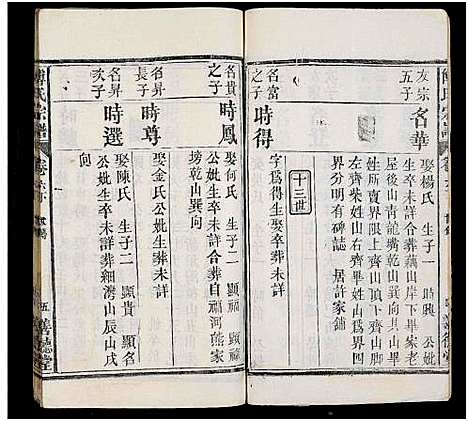 傅氏宗譜
友宗五子
名華
娶楊氏 生子一 時興 公妣
生卒未詳合葬藕山岸下畢家老
屋後山青龍嘴乾山巽向其山畢
姓所賣界限上齊山頂下齊山脚
左齊柴姓山右齊畢姓山為四
界分明有碑誌 居許家鋪
十三世
名富之子
時得
字爲得生娶卒葬未詳
名貴之子
時鳳
娶何氏 生子二 顯福 顯祿
公妣生卒未詳合葬自福河熊家
塝乾山巽向
名昇長子
時尊
娶金氏公妣生葬未詳
名昇次子
時選
娶陳氏 生子二 顯貴 顯名
公妣生卒未詳葬細灣山辰山戌
向
傅氏宗譜
卷六下
世錫
五
善德堂